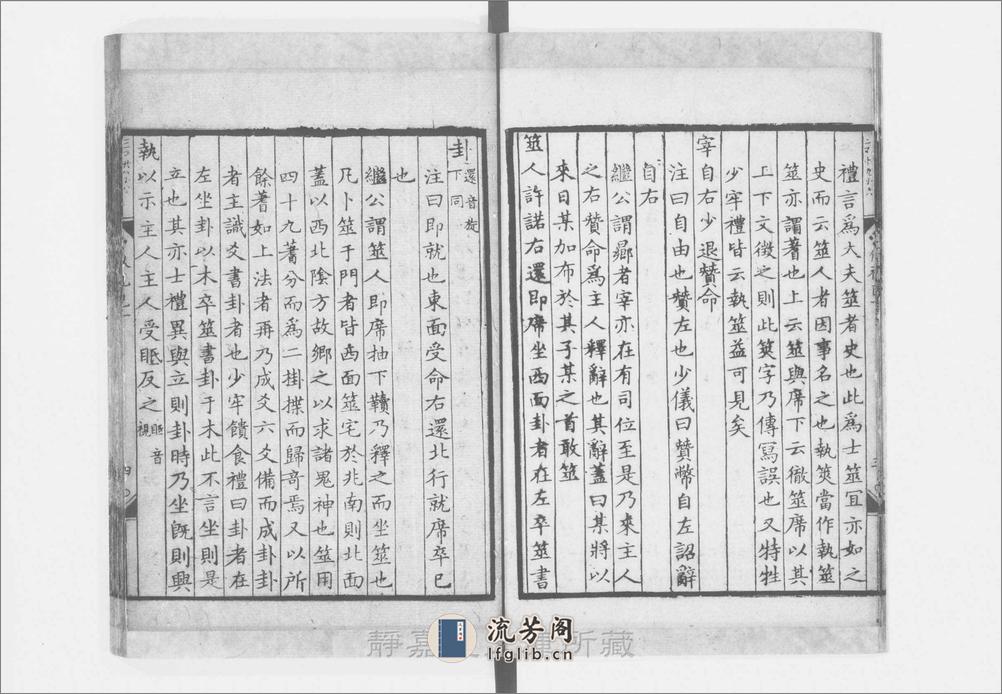 禮言爲大夫筮者史也此爲士筮宜亦如之
史而云筮人者因事名之也執筴當作執筮
筮亦謂蓍也上云筮與席下云徹筮席以其
上下文徵之則此筴字乃傳寫誤也又特牲
少牢禮皆云執筮益可見矣
宰自右少退贊命
注曰自由也贊左也少儀曰贊幣自左詔辭
自右
繼公謂鄉者宰亦在有司位至是乃來主人
之右贊命爲主人釋辭也其辭蓋曰某將以
來日某加布於其子某之首敢筮
筮人許諾右還即席坐西面卦者在左卒筮書
卦 還音旋下同
注曰即就也東面受命右還北行就席卒已
也
繼公謂筮人即席抽下韇乃釋之而坐筮也
凡卜筮于門者皆西面筮宅於兆南則北面
蓋以西北陰方故鄉之以求諸鬼神也筮用
四十九蓍分而爲二掛揲而歸奇焉又以所
餘蓍如上法者再乃成爻六爻備而成卦卦
者主識爻書卦者也少牢饋食禮曰卦者在
左坐卦以木卒筮書卦于木此不言坐則是
立也其亦士禮異與立則卦時乃坐旣則興
執以示主人主人受眡反之 眡音視
四
靜嘉 所藏
流芳阁
lfglib.cn